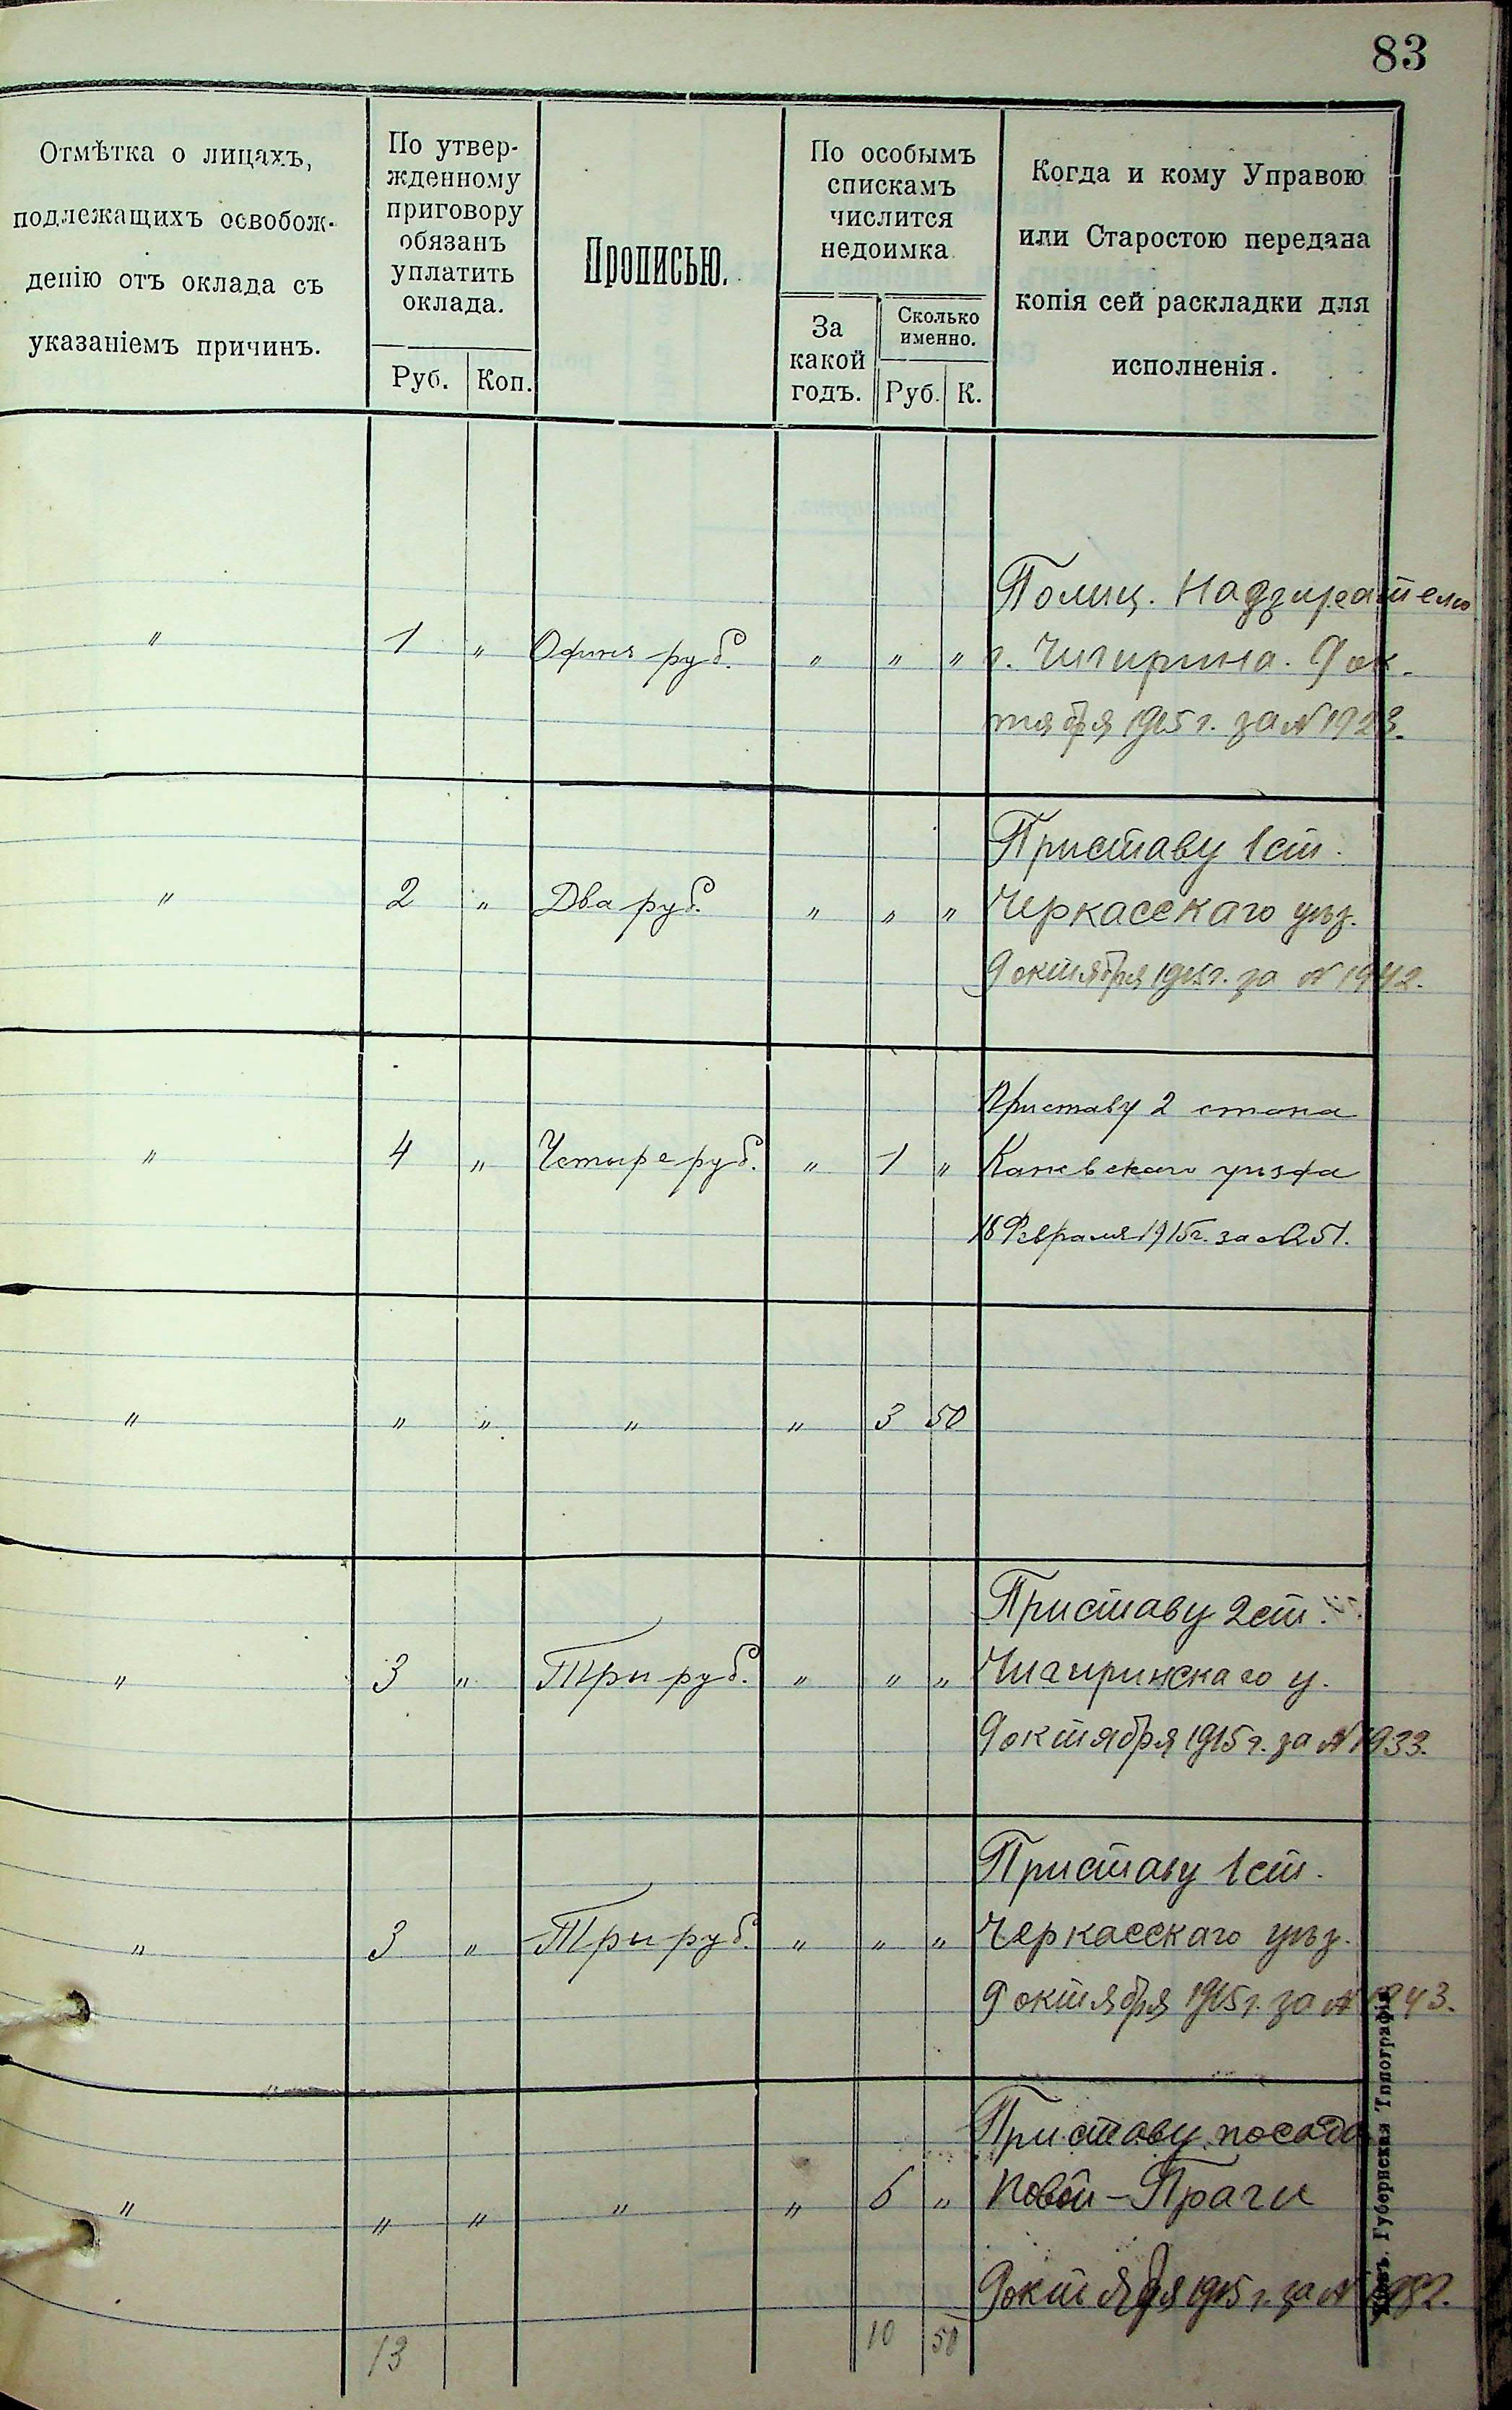 83
Отмѣтка о лицахъ,
подлежащихъ освобож-
денію отъ оклада съ
указаніемъ причинъ.
По утвер-
жденному
приговору
обязанъ
уплатить
оклада.
Руб. Коп.
Прописью.
По особымъ
спискамъ
числится
недоимка
За
какой
годъ.
Сколько
именно.
Руб. К.
Когда и кому Управою
или Старостою передана
копія сей раскладки для
исполненія.
Полиц. Надзирателю
" 1 " Одинъ руб. " " " г. Чигирина. 9 ок-
тября 1915 г. за № 1923.
Приставу 1 ст.
" 2 " Два руб. " " " Черкасскаго уѣз.
9 октября 1915 г. за № 1942.
Приставу 2 стана
" 4 " Четыре руб. " 1 " Каневскаго уѣзда
18 Февраля 1915 г. за № 251.
" " " " " 3 50
Приставу 2 ст.
" 3 " Три руб. " " " Чигиринскаго у.
9 октября 1915 г. за № 1933.
Приставу 1 ст.
" 3 " Три руб. " " " Черкасскаго уѣз.
9 октября 1915 г. за № 1943.
Приставу посада
" " " " " 6 " Новой-Праги
9 октября 1915 г. за №
13 10 50
Губернская Типографія